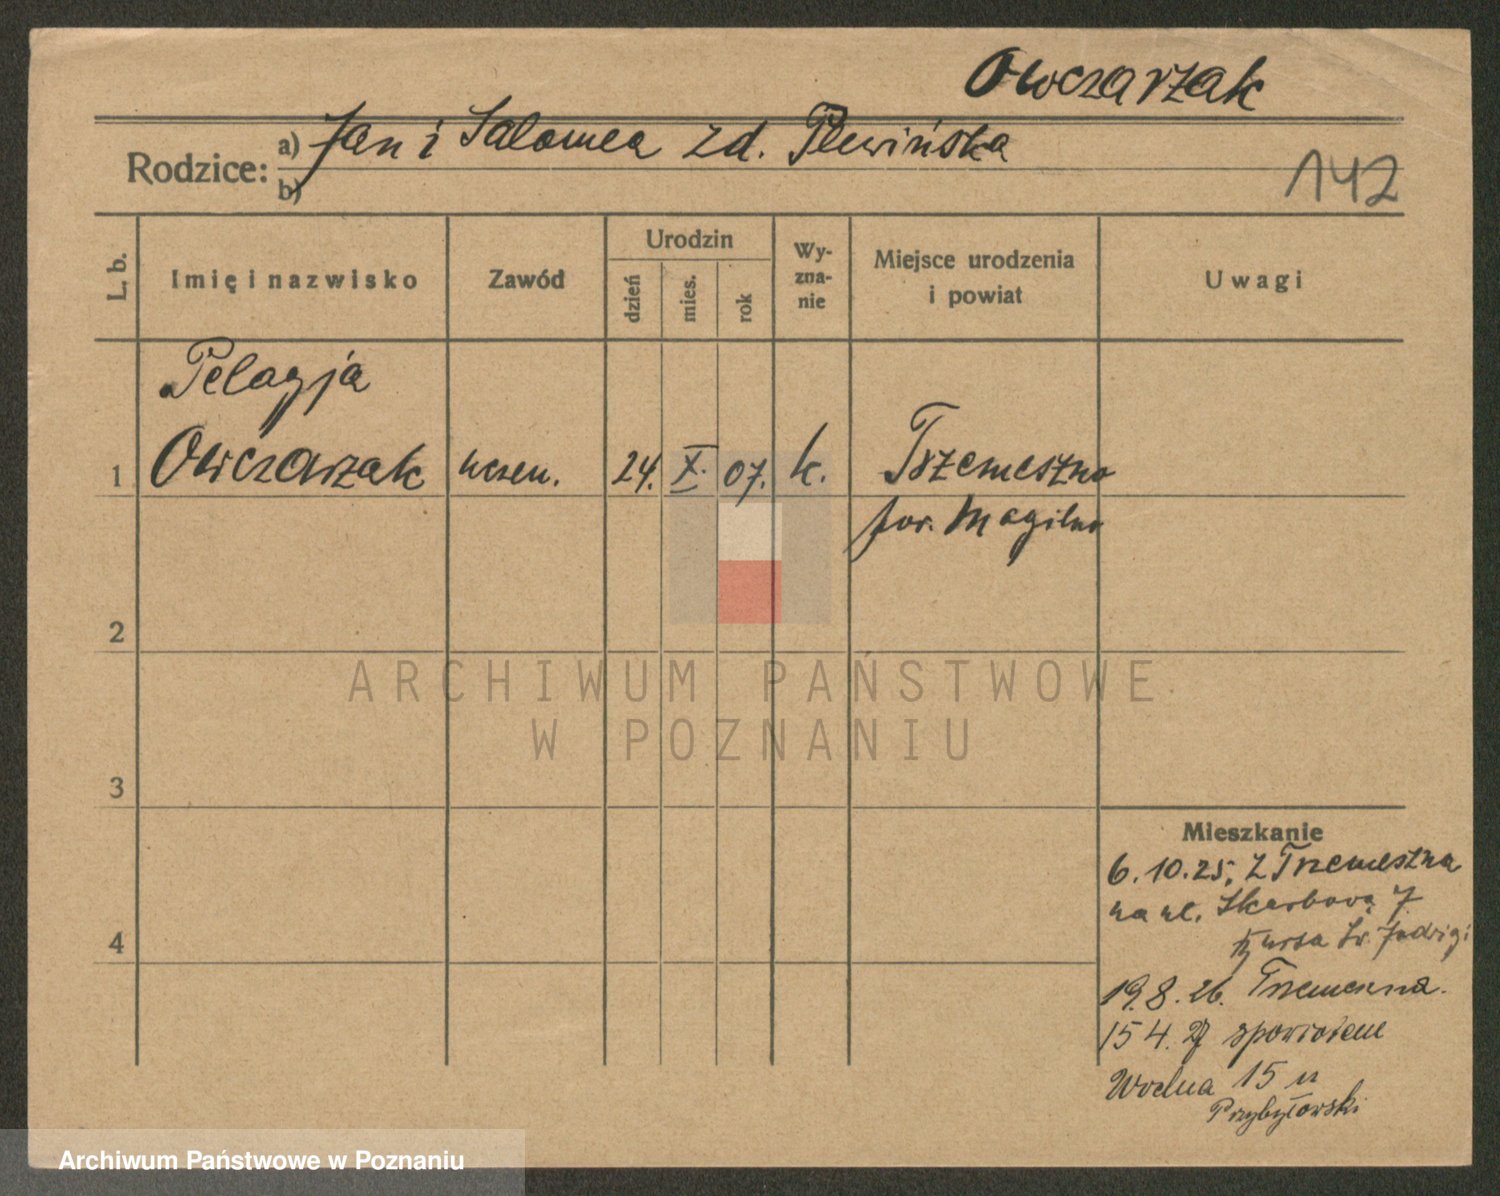 Owczarzak
Rodzice: a) Jan i Salomea zd. Plewińska
b)
142
L. b.
Imię i nazwisko
Zawód
Urodzin
dzień
mies.
rok
Wy-
zna-
nie
Miejsce urodzenia
i powiat
Uwagi
Pelagja
1 Owczarzak uczen. 24. X. 07. k. Trzemeszno
pow. Mogilno
2
3
4
Mieszkanie
6.10.25. z Trzemeszna
na ul. Skarbową 7
św. Jadwigi
19.8.26. Trzemeszna.
15 4. 27 spowrotem
Wodna 15 u
Przybyłowski
ARCHIWUM PAŃSTWOWE
W POZNANIU
Archiwum Państwowe w Poznaniu